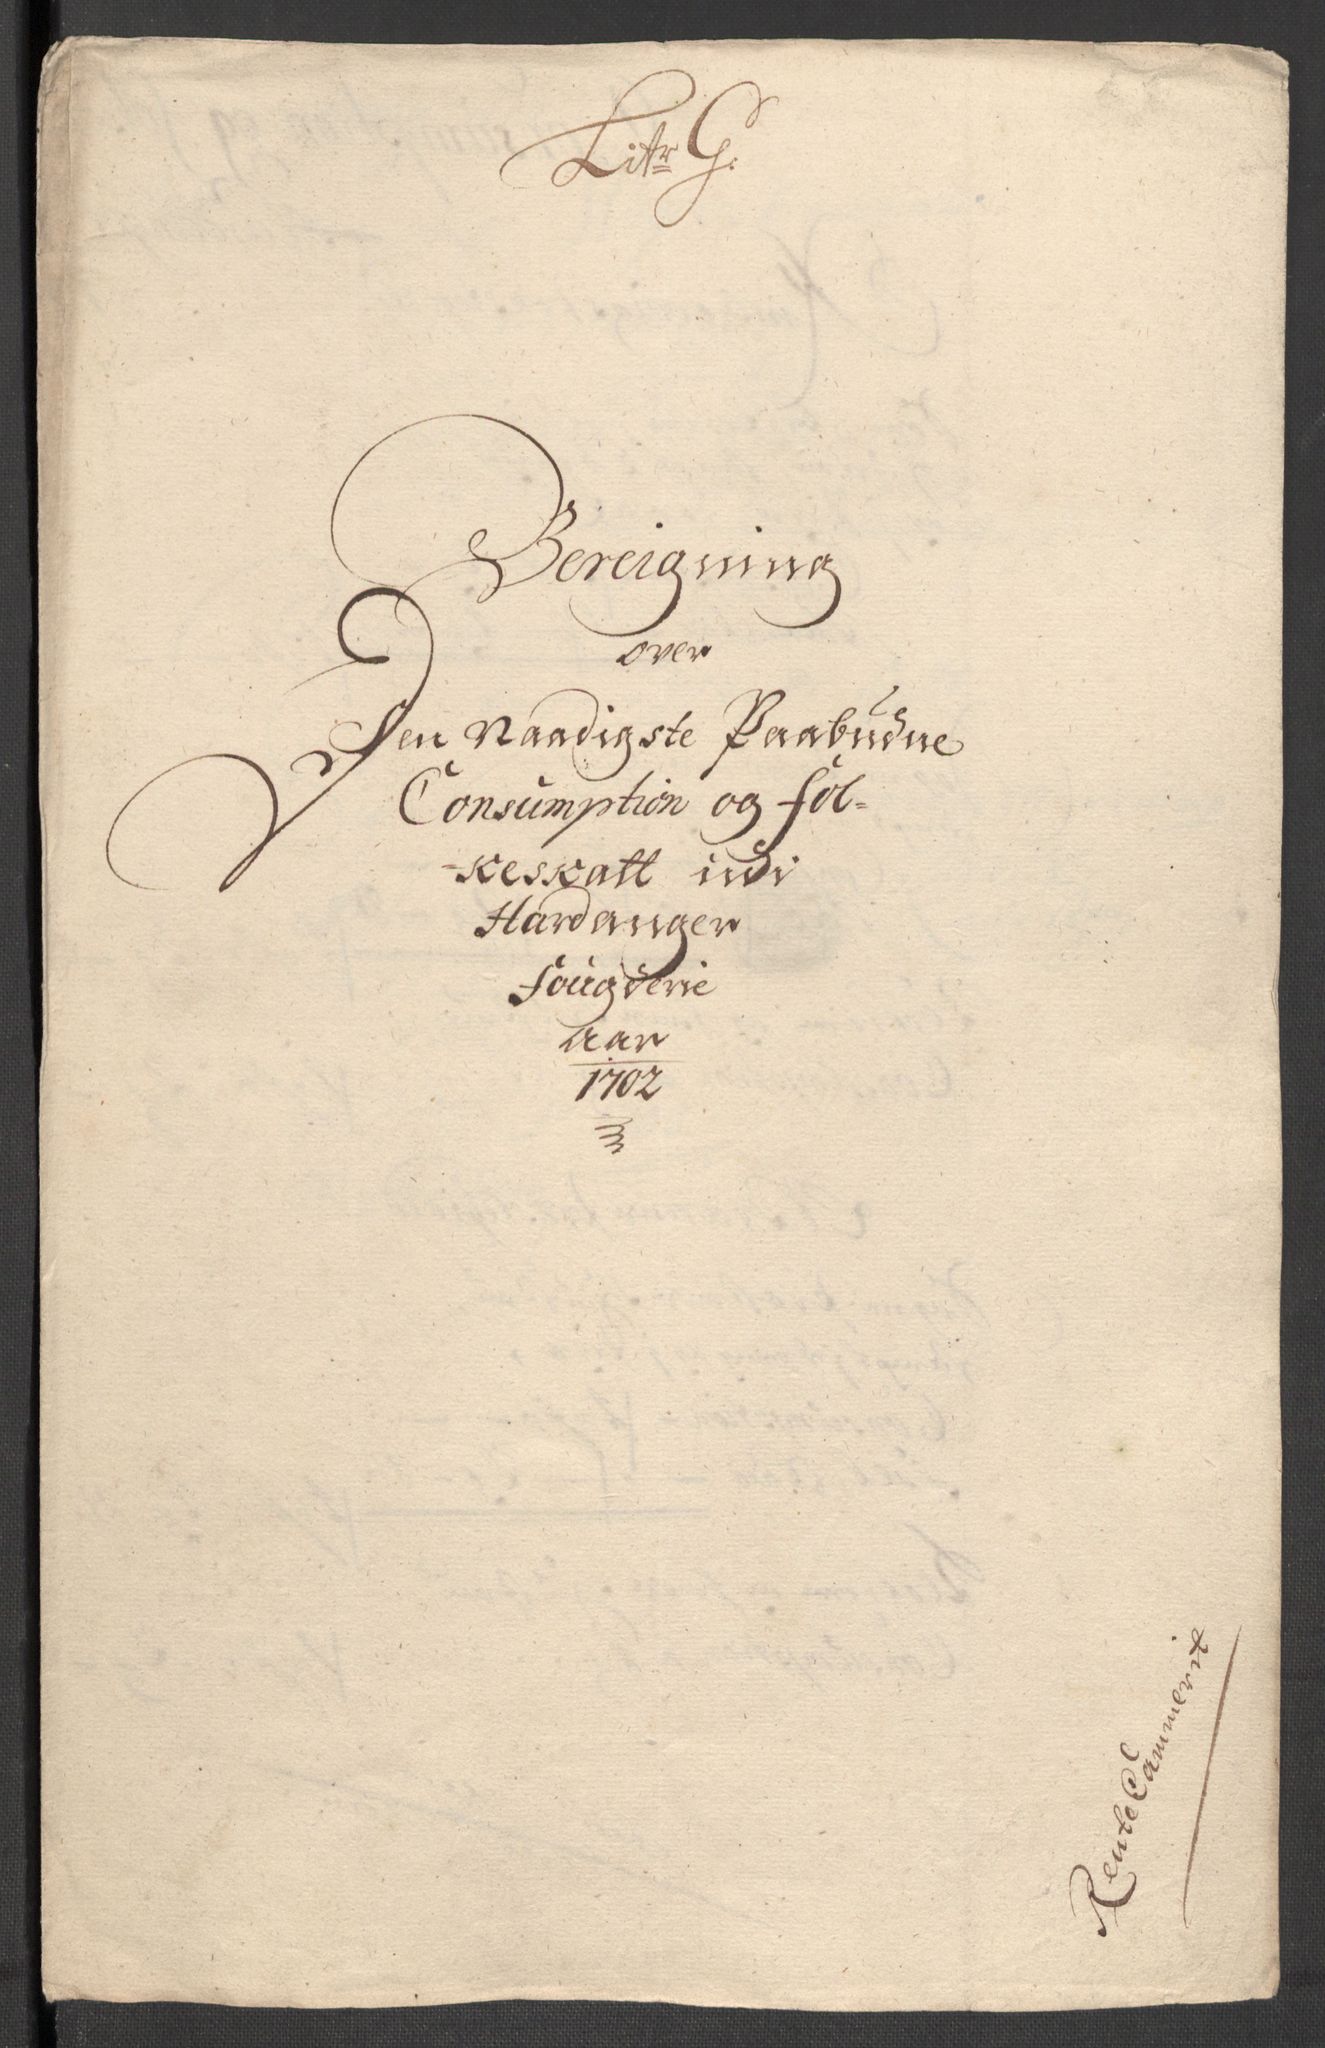 Litr G:
Bereigning
over
Den Naadigste Paabudne
Consumption og fol=
-keskatt udi
Hardanger
fougderie
aar
1702
RenteCammerit